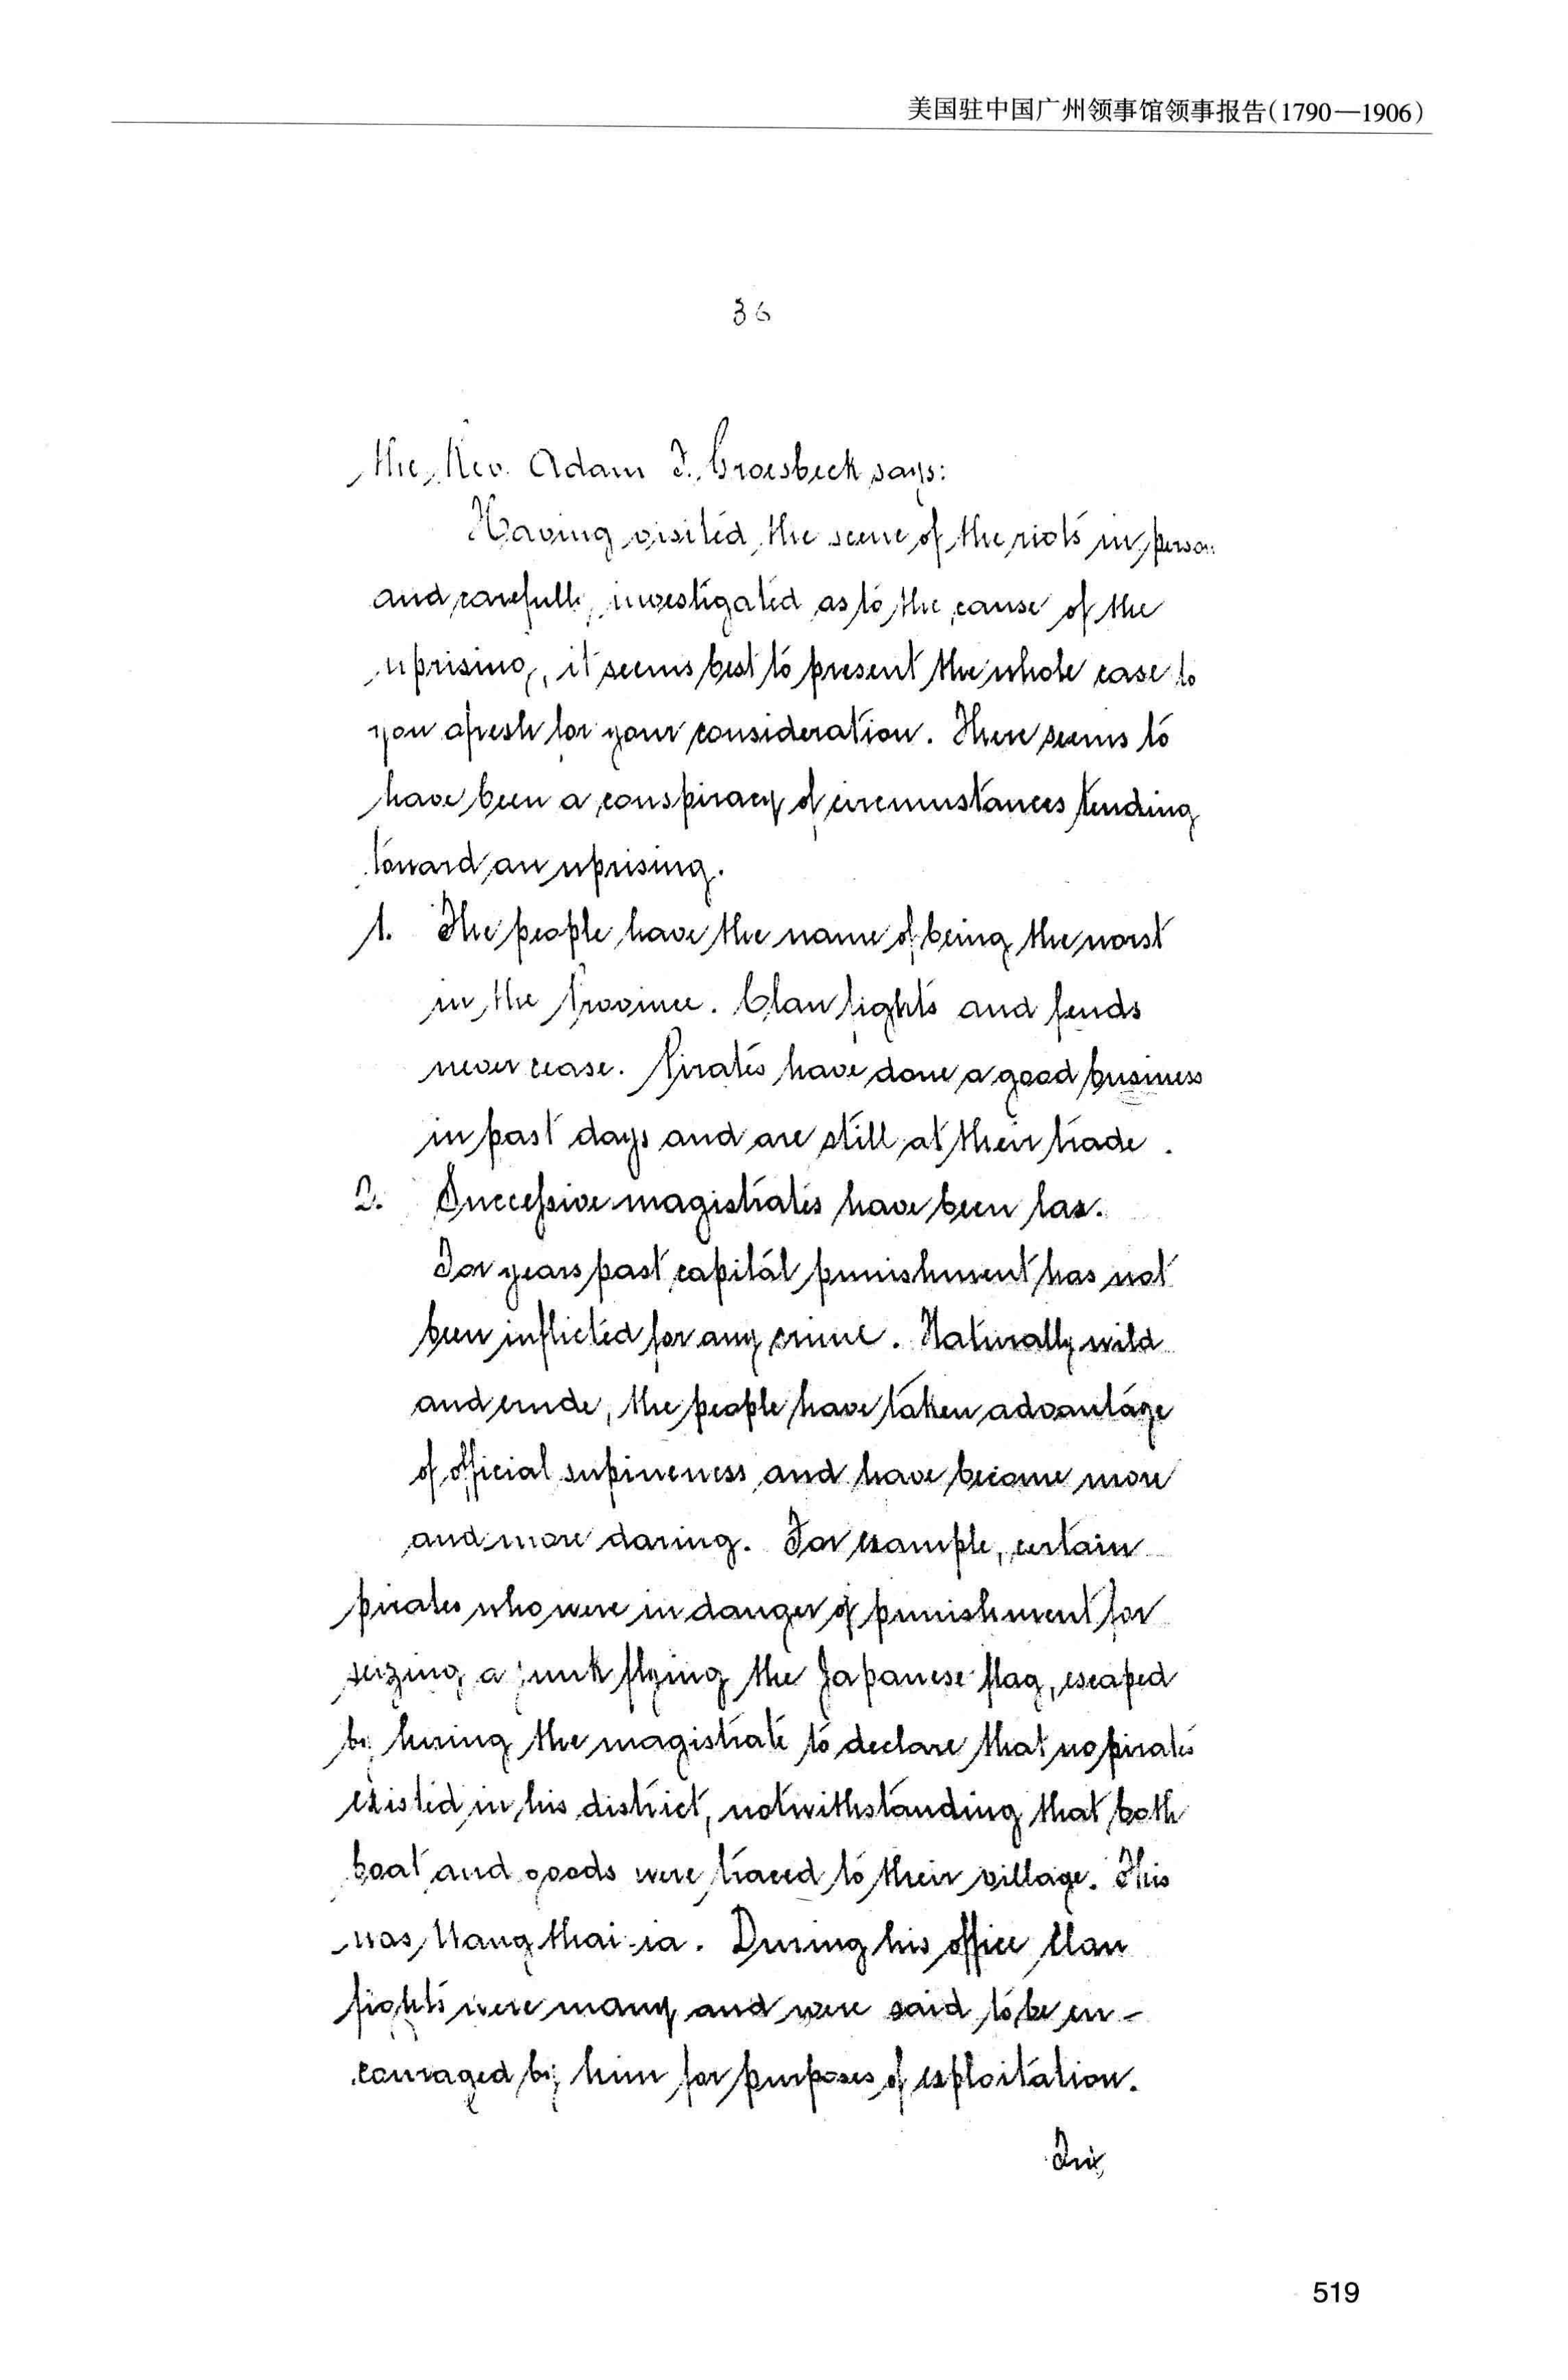 美国驻中国广州领事馆领事报告(1790—1906)
36
the Rev. Adam F. Groesbeck says:
Having visited the scene of the riots in person
and carefully investigated as to the cause of the
uprising, it seems best to present the whole case to
you afresh for your consideration. There seems to
have been a conspiracy of circumstances tending
toward an uprising.
1. The people have the name of being the worst
in the Province. Clan fights and feuds
never cease. Pirates have done a good business
in past days and are still at their trade.
2. Successive magistrates have been lax.
For years past capital punishment has not
been inflicted for any crime. Naturally wild
and crude, the people have taken advantage
of official supineness and have become more
and more daring. For example, certain
pirates who were in danger of punishment for
seizing a junk flying the Japanese flag, escaped
by hiring the magistrate to declare that no pirates
existed in his district, notwithstanding that both
boat and goods were traced to their village. This
was thai-ia. During his office Clan
fights were many and were said to be en-
couraged by him for purposes of exploitation.
519